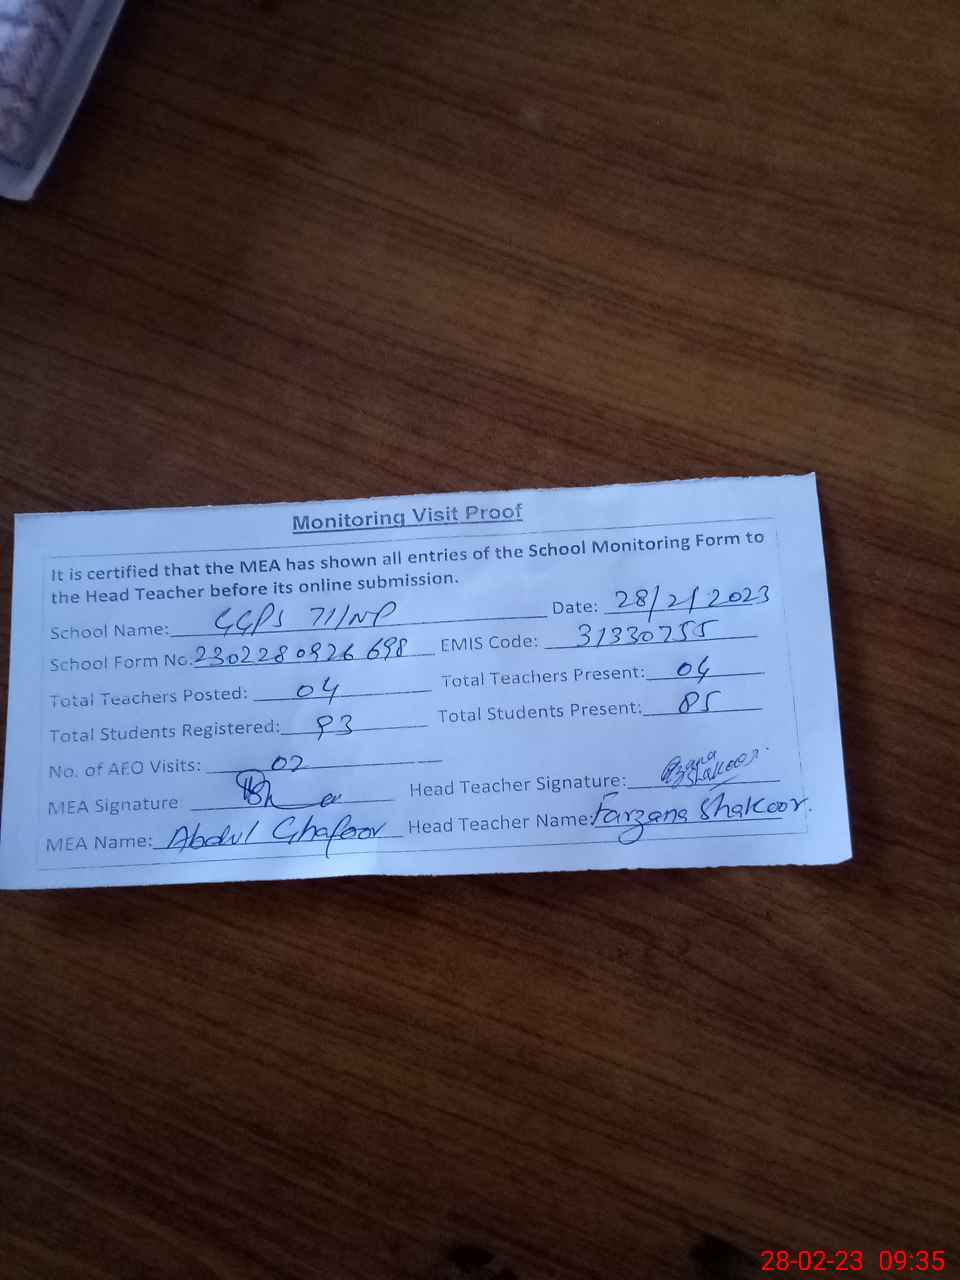 Monitoring Visit Proof
It is certified that the MEA has shown all entries of the School Monitoring Form to
the Head Teacher before its online submission.
School Name: GGPS 71/NP Date: 28/2/2023
School Form No. 2302280926698 EMIS Code: 31330755
Total Teachers Posted: 04 Total Teachers Present: 04
Total Students Registered: 93 Total Students Present: 85
No. of AEO Visits: 02
MEA Signature: Head Teacher Signature: Shakoor
MEA Name: Abdul Ghafoor Head Teacher Name: Farzana Shakoor.
28-02-23 09:35